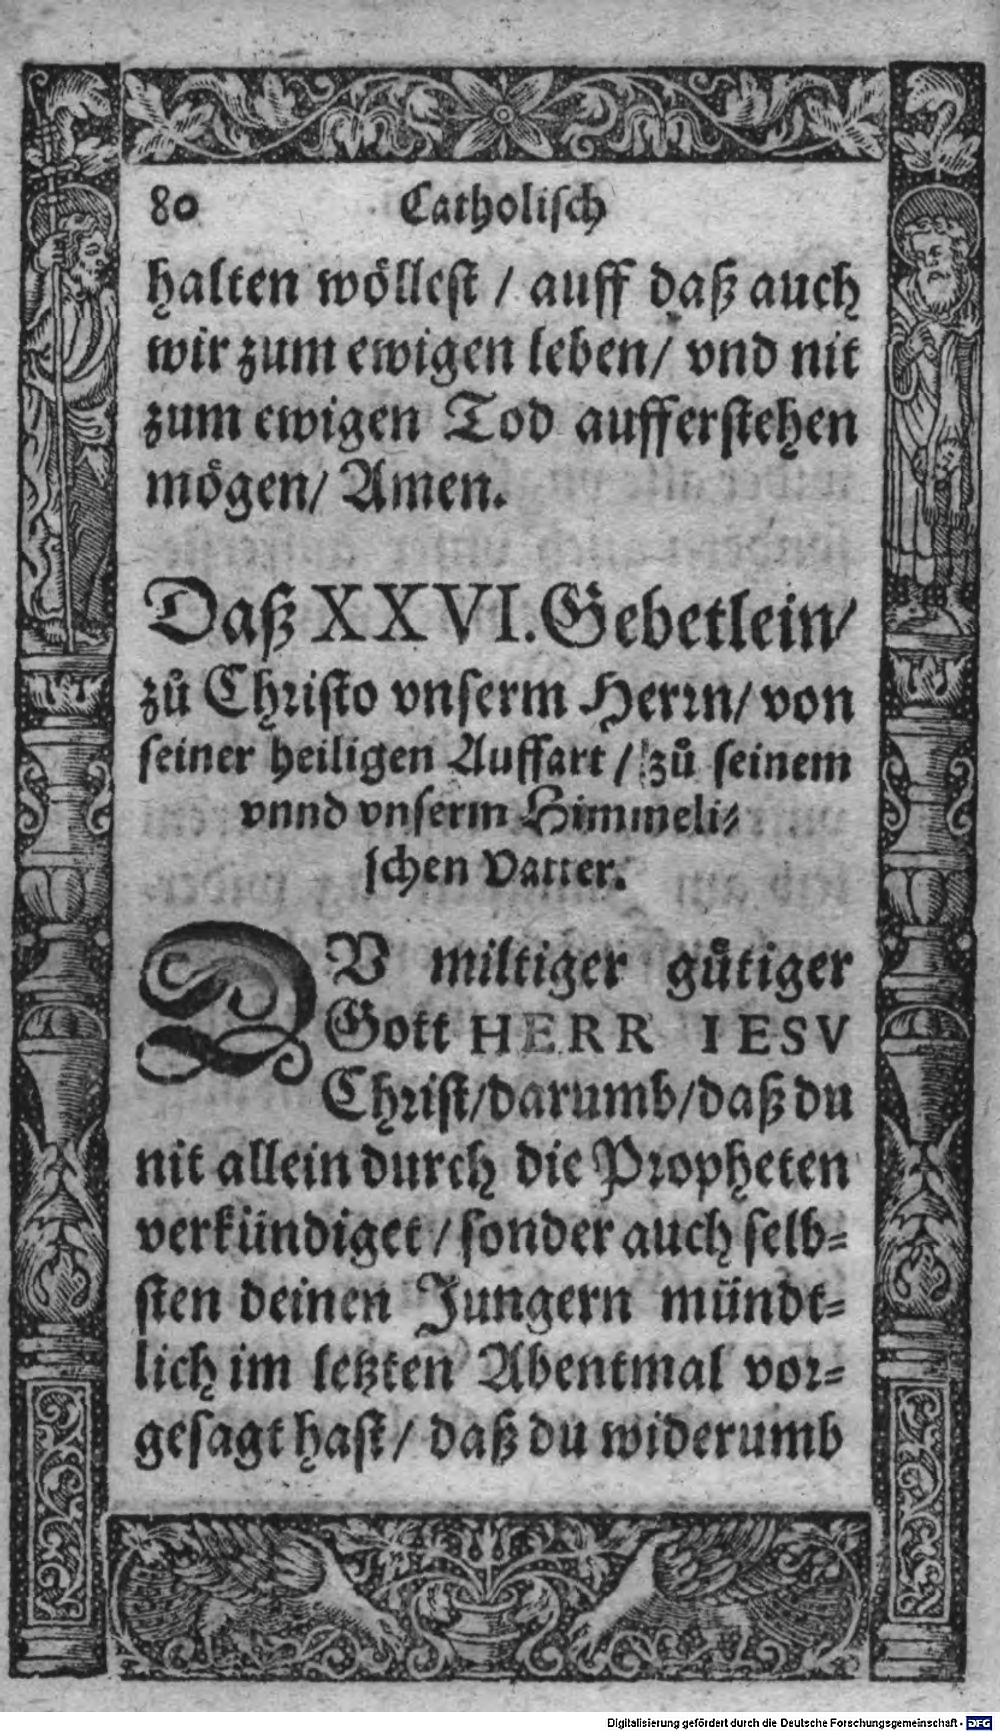 80 Catholisch
halten wöllest / auff daß auch
wir zum ewigen leben / vnd nit
zum ewigen Tod aufferstehen
mögen / Amen.
Daß XXVI. Gebetlein /
zů Christo vnserm Herrn / von
seiner heiligen Auffart / zů seinem
vnnd vnserm Himmeli⸗
schen Vatter.
DV miltiger gůtiger
Gott HERR IESV
Christ / darumb / daß du
nit allein durch die Propheten
verkündiget / sonder auch selb⸗
sten deinen Jungern mündt⸗
lich im letzten Abentmal vor⸗
gesagt hast / daß du widerumb
Digitalisierung gefördert durch die Deutsche Forschungsgemeinschaft - DFG